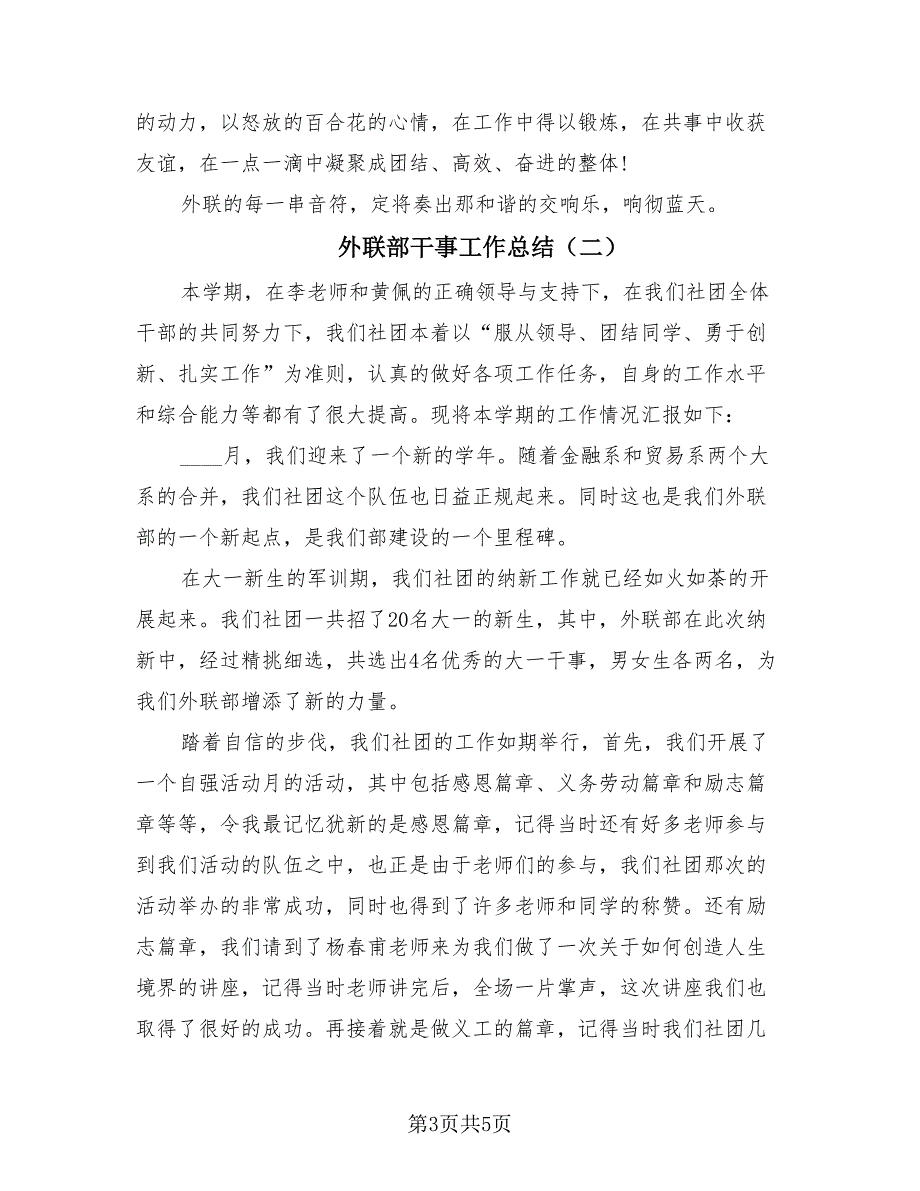 的动力，以怒放的百合花的心情，在工作中得以锻炼，在共事中收获
友谊，在一点一滴中凝聚成团结、高效、奋进的整体!
外联的每一串音符，定将奏出那和谐的交响乐，响彻蓝天。
外联部干事工作总结（二）
本学期，在李老师和黄佩的正确领导与支持下，在我们社团全体
干部的共同努力下，我们社团本着以“服从领导、团结同学、勇于创
新、扎实工作”为准则，认真的做好各项工作任务，自身的工作水平
和综合能力等都有了很大提高。现将本学期的工作情况汇报如下：
____月，我们迎来了一个新的学年。随着金融系和贸易系两个大
系的合并，我们社团这个队伍也日益正规起来。同时这也是我们外联
部的一个新起点，是我们部建设的一个里程碑。
在大一新生的军训期，我们社团的纳新工作就已经如火如荼的开
展起来。我们社团一共招了20名大一的新生，其中，外联部在此次纳
新中，经过精挑细选，共选出4名优秀的大一干事，男女生各两名，为
我们外联部增添了新的力量。
踏着自信的步伐，我们社团的工作如期举行，首先，我们开展了
一个自强活动月的活动，其中包括感恩篇章、义务劳动篇章和励志篇
章等等，令我最记忆犹新的是感恩篇章，记得当时还有好多老师参与
到我们活动的队伍之中，也正是由于老师们的参与，我们社团那次的
活动举办的非常成功，同时也得到了许多老师和同学的称赞。还有励
志篇章，我们请到了杨春甫老师来为我们做了一次关于如何创造人生
境界的讲座，记得当时老师讲完后，全场一片掌声，这次讲座我们也
取得了很好的成功。再接着就是做义工的篇章，记得当时我们社团几
第3页共5页